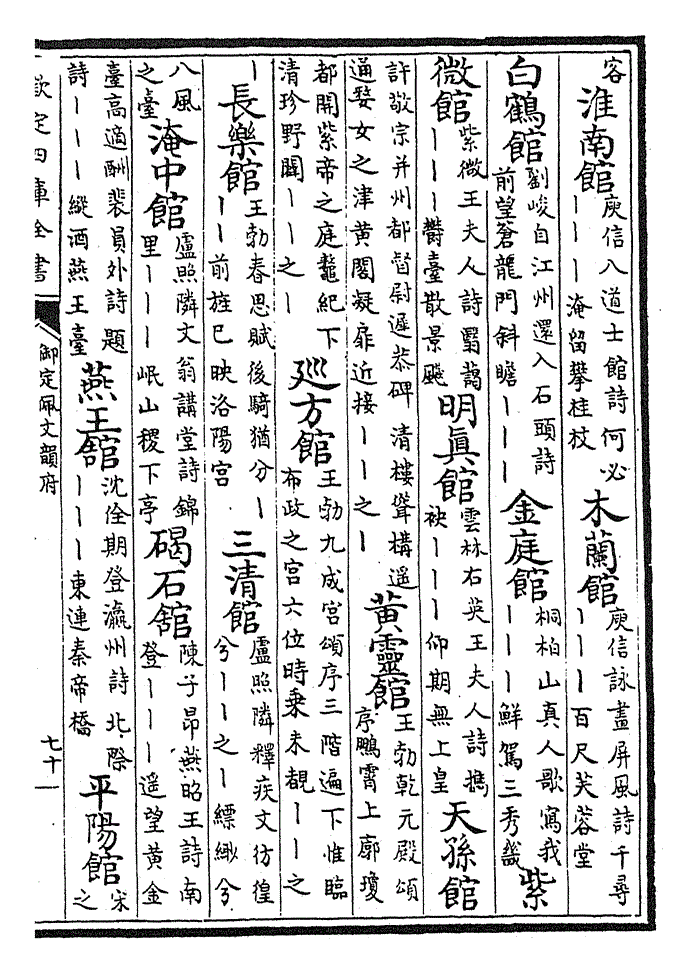 容淮南館庾信八道士館詩何必丨丨丨淹留攀桂枝木蘭館庾信詠畫屏風詩千尋丨丨丨百尺芙蓉堂
白鶴館劉峻自江州還入石頭詩前望蒼龍門斜瞻丨丨丨金庭館桐柏山真人歌寫我丨丨丨鮮駕三秀畿紫
微館紫微王夫人詩翳藹丨丨丨鬱臺散景飈明眞館雲林右英王夫人詩攜袂丨丨丨仰期無上皇天孫館
許敬宗并州都督尉遲恭碑清樓聳構遥通婺女之津黄閣凝扉近接丨丨之丨黄靈館王勃乾元殿頌序鵬霄上廓瓊
都開紫帝之庭鼇紀下清珍野闢丨丨之丨廵方館王勃九成宫頌序三階遍下惟臨布政之宫六位時乗未覩丨丨之
丨長樂館王勃春思賦後騎猶分丨丨丨前旌已映洛陽宫三清館盧照隣釋疾文彷徨兮丨丨之丨縹緲兮
八風之臺淹中館盧照隣文翁講堂詩錦里丨丨丨岷山稷下亭碣石舘陳子昂燕昭王詩南登丨丨丨遥望黄金
臺高適酬裴員外詩題詩丨丨丨縱酒燕王臺燕王舘沈佺期登瀛州詩北際丨丨丨東連秦帝橋平陽館宋之
欽定四庫全書
御定佩文韻府
七十一